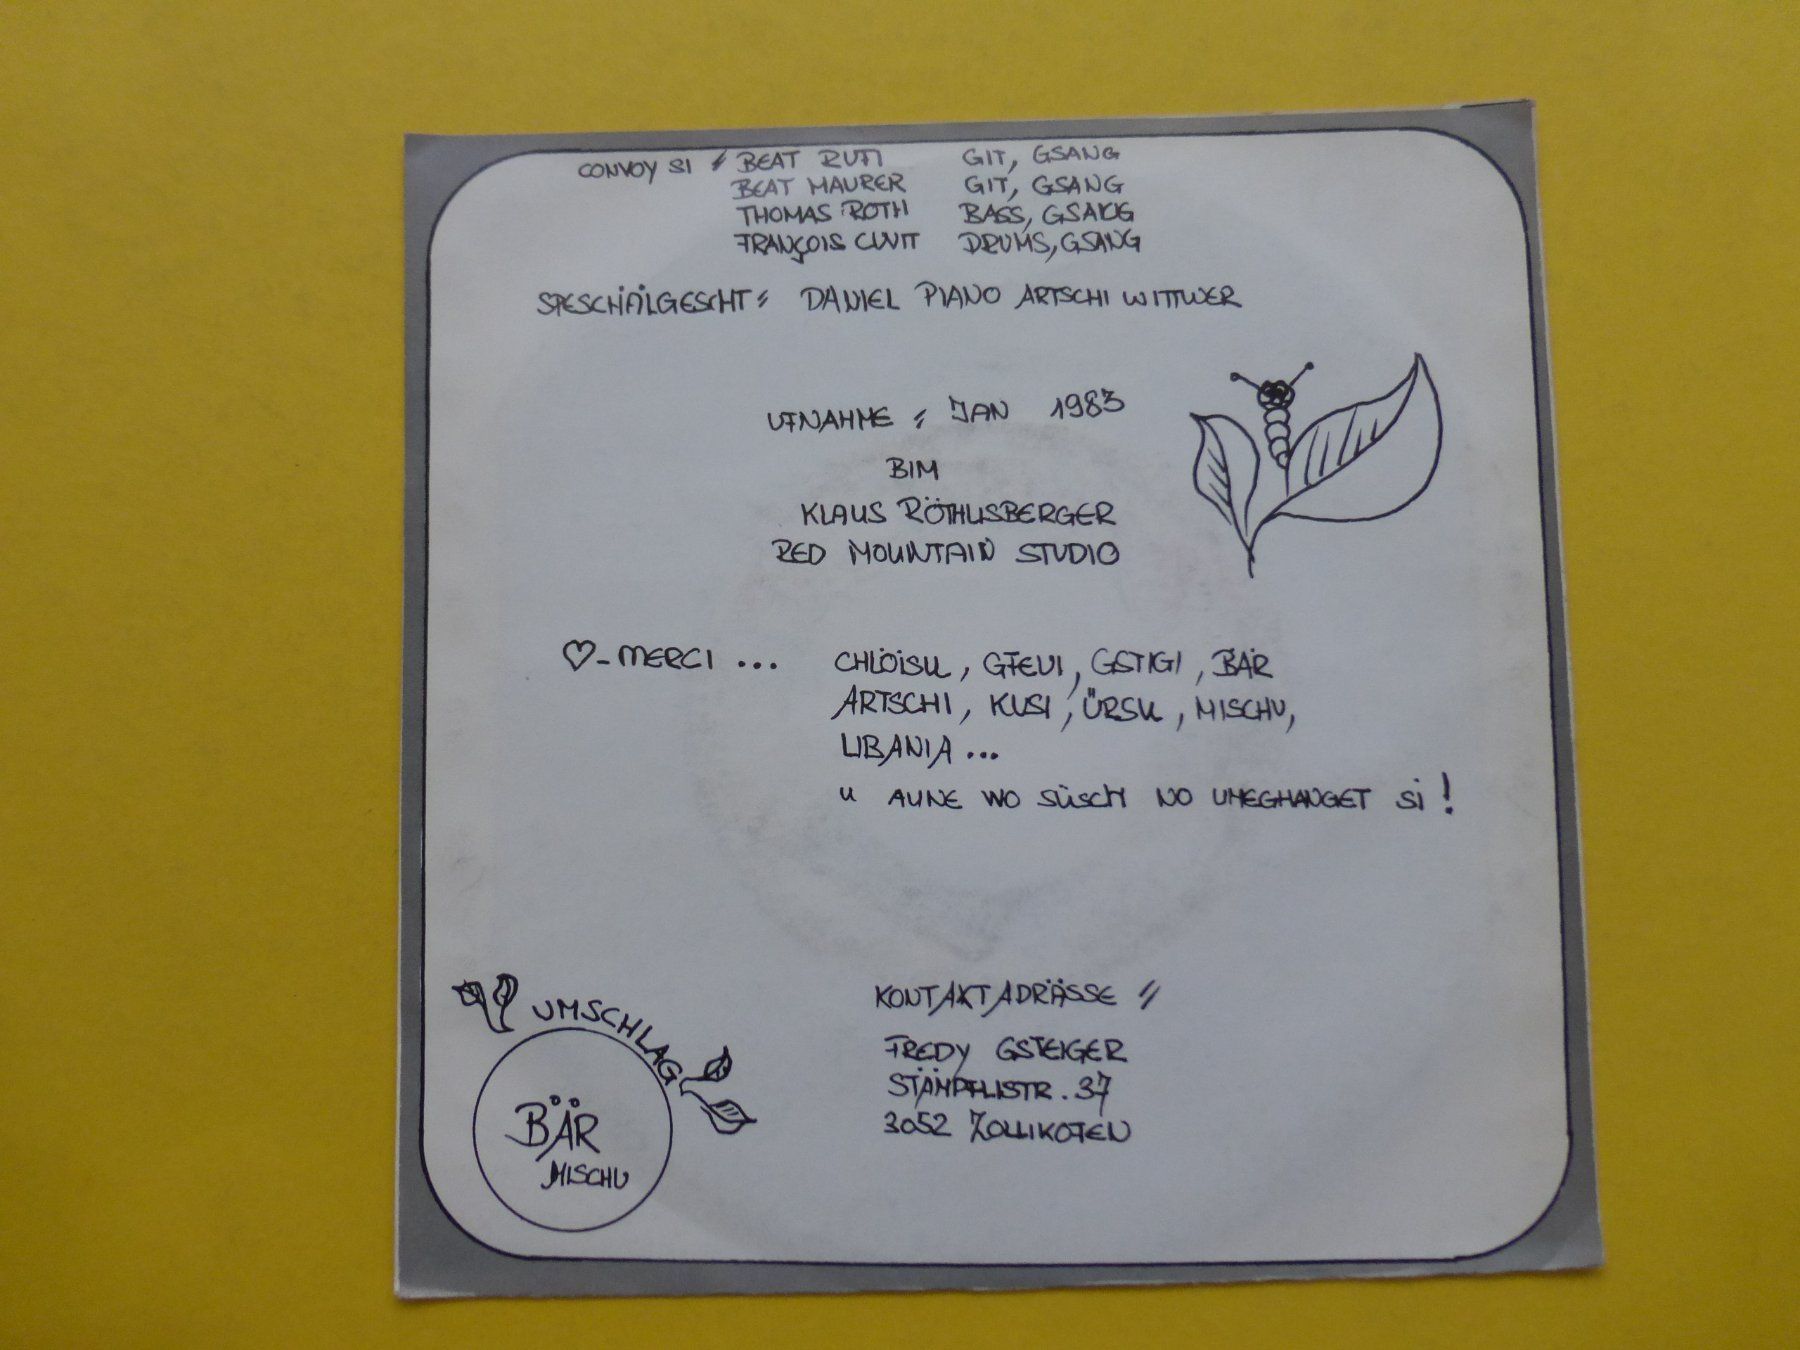 CONVOY SI : BEAT RUFI GIT, GSANG
BEAT MAURER GIT, GSANG
THOMAS ROTH BASS, GSANG
FRANÇOIS CUVIT DRUMS, GSANG
SPESCHÄLGESCHT : DANIEL PIANO ARTSCHI WITTWER
UFNAHME : JAN 1983
BIM
KLAUS RÖTHLISBERGER
RED MOUNTAIN STUDIO
♡-MERCI ... CHLÖISU, GFEUI, GSTIGI, BÄR
ARTSCHI, KUSI, ÜRSU, MISCHU,
LIBANIA ...
U AUNE WO SÜSCH NO UMEGHANGET SI !
KONTAKTADRÄSSE :
FREDY GSTEIGER
STÄMPFLISTR. 37
3052 ZOLLIKOFEN
UMSCHLAG
BÄR
MISCHU